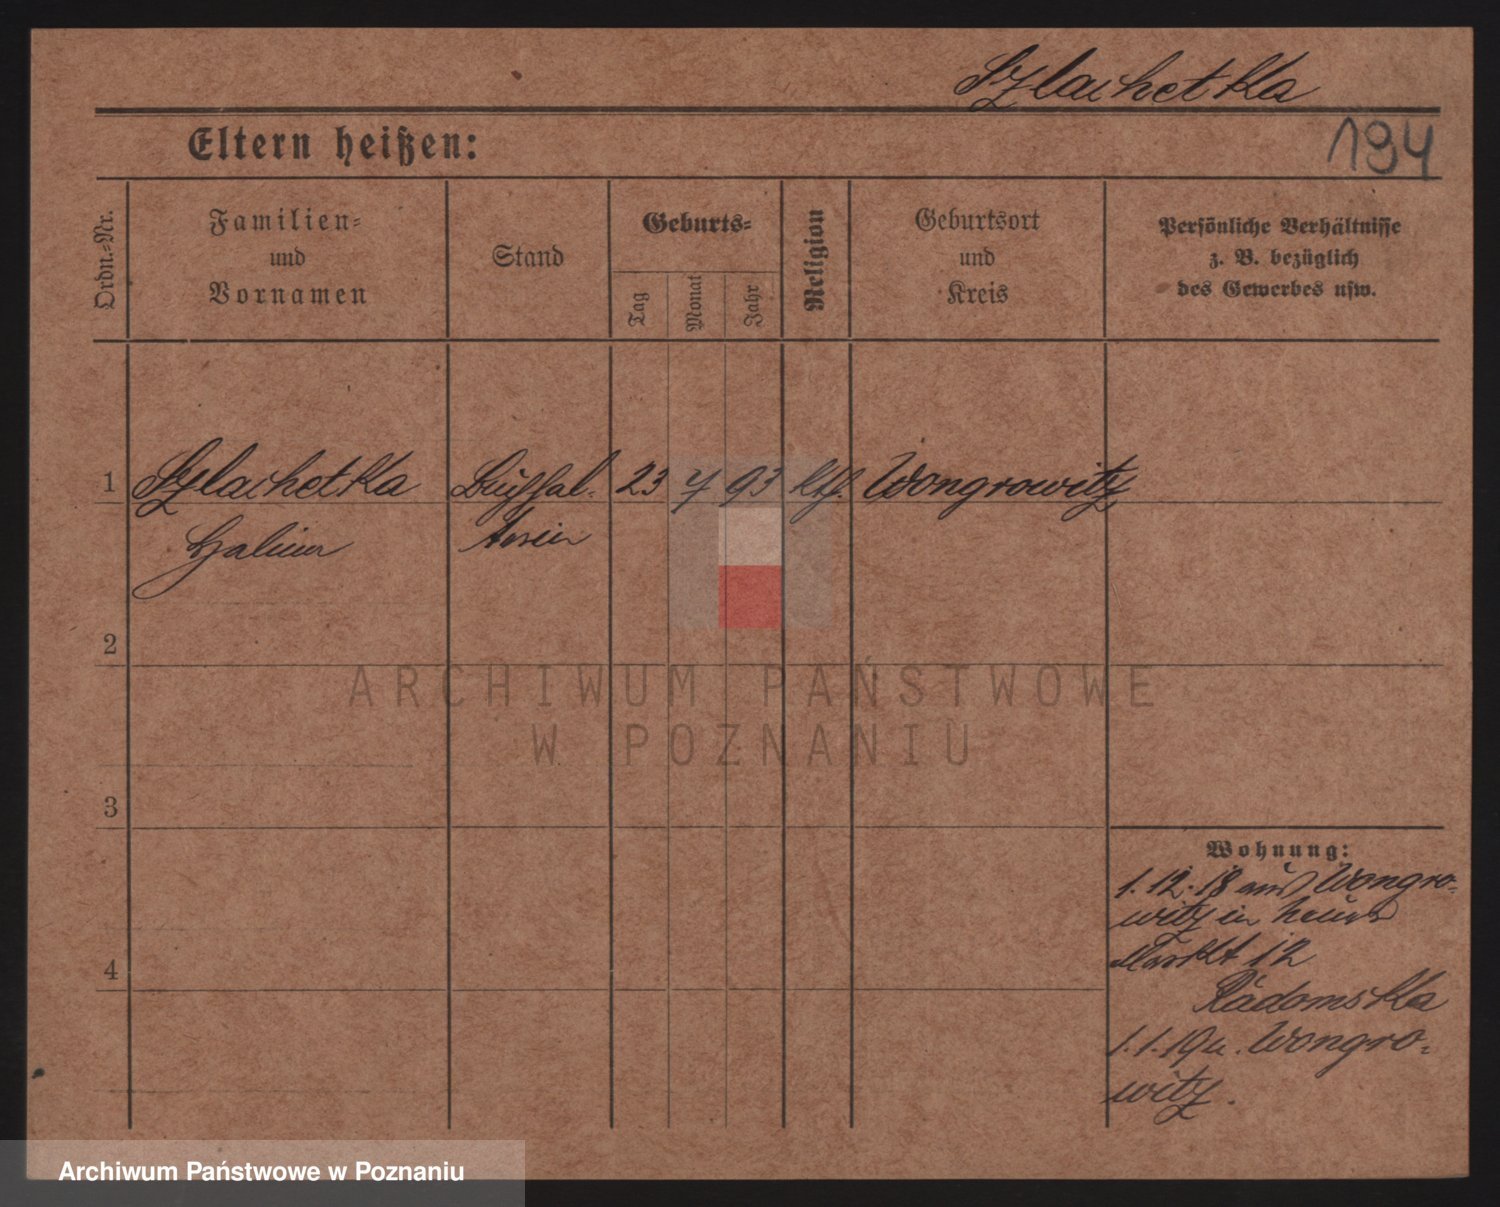 Szlachetka
194
Eltern heißen:
Ordn.-Nr.
Familien-
und
Vornamen
Stand
Geburts-
Tag
Monat
Jahr
Religion
Geburtsort
und
Kreis
Persönliche Verhältnisse
z. B. bezüglich
des Gewerbes usw.
1 Szlachetka Buchhal- 23 7 93 kth. Wongrowitz
terin
2
3
4
Wohnung:
1.12.18 aus Wongro-
witz in
Markt 12
Radomska
1.1.19 n. Wongro-
witz.
ARCHIWUM PAŃSTWOWE
W POZNANIU
Archiwum Państwowe w Poznaniu